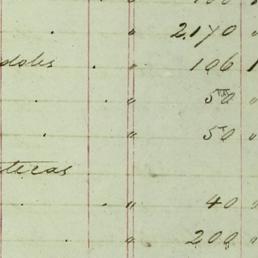 " 2.170 "
dobs . " 106 1
. " 50 "
. " 50 "
tecas
. " 40 "
. " 200 "